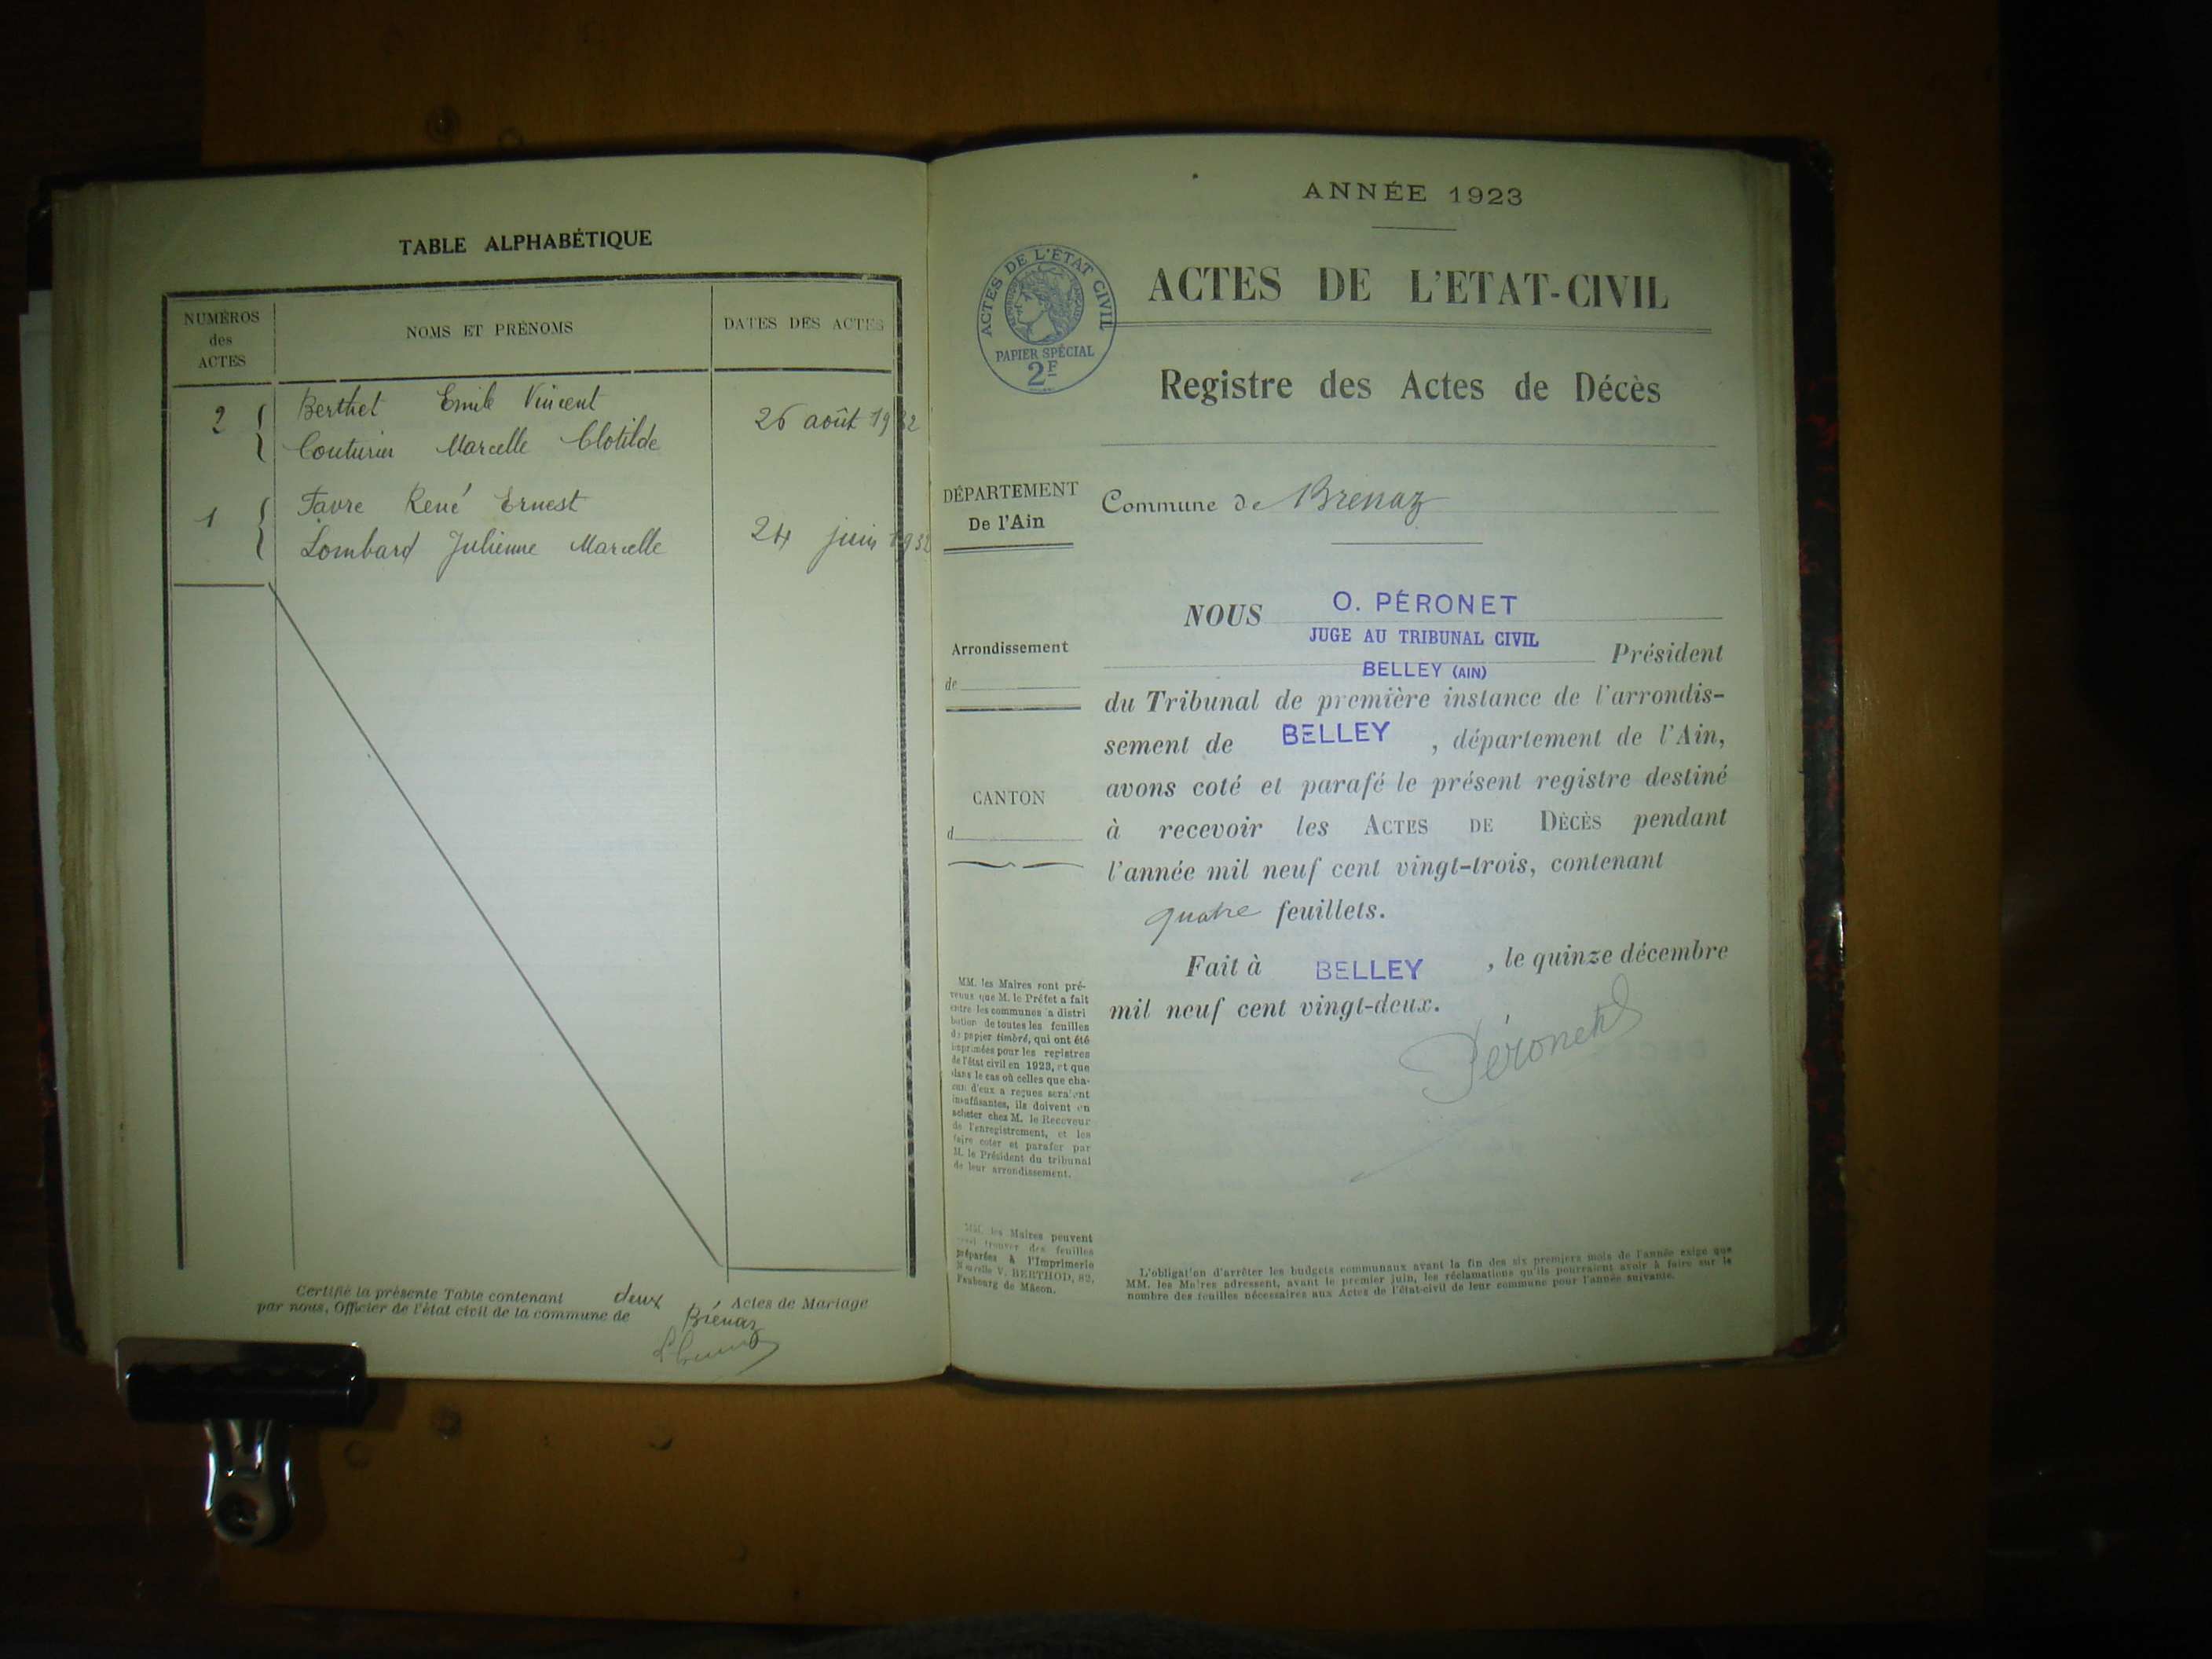 TABLE ALPHABÉTIQUE
NUMÉROS
des
ACTES
NOMS ET PRÉNOMS
DATES DES ACTES
2
Berthet Emile Vincent
Couturier Marcelle Clotilde
26 août 1932
1
Favre René Ernest
Lombard Julienne Marcelle
24 juin 1932
Certifié la présente Table contenant deux Actes de Mariage
par nous, Officier de l'état civil de la commune de Brénaz
ANNÉE 1923
ACTES DE L'ÉTAT CIVIL
PAPIER SPÉCIAL
2F
ACTES DE L'ETAT-CIVIL
Registre des Actes de Décès
DÉPARTEMENT
De l'Ain
Commune de Brenaz
Arrondissement
de
CANTON
d
NOUS O. PÉRONET
JUGE AU TRIBUNAL CIVIL
BELLEY (AIN)
Président
du Tribunal de première instance de l'arrondis-
sement de BELLEY, département de l'Ain,
avons coté et parafé le présent registre destiné
à recevoir les ACTES DE DÉCÈS pendant
l'année mil neuf cent vingt-trois, contenant
quatre feuillets.
Fait à BELLEY, le quinze décembre
mil neuf cent vingt-deux.
Péronet
MM. les Maires sont pré-
venus que M. le Préfet a fait
entre les communes a distri
bution de toutes les feuilles
du papier timbré, qui ont été
imprimées pour les registres
de l'état civil en 1923, et que
dans le cas où celles que cha-
cun d'eux a reçues seraient
insuffisantes, ils doivent en
acheter chez M. le Receveur
de l'enregistrement, et les
faire coter et parafer par
M. le Président du tribunal
de leur arrondissement.
MM. les Maires peuvent
trouver des feuilles
préparées à l'Imprimerie
Nouvelle V. BERTHOD, 82,
Faubourg de Mâcon.
L'obligation d'arrêter les budgets communaux avant la fin des six premiers mois de l'année exige que
MM. les Maires adressent, avant le premier juin, les réclamations qu'ils pourraient avoir à faire sur le
nombre des feuilles nécessaires aux Actes de l'état-civil de leur commune pour l'année suivante.